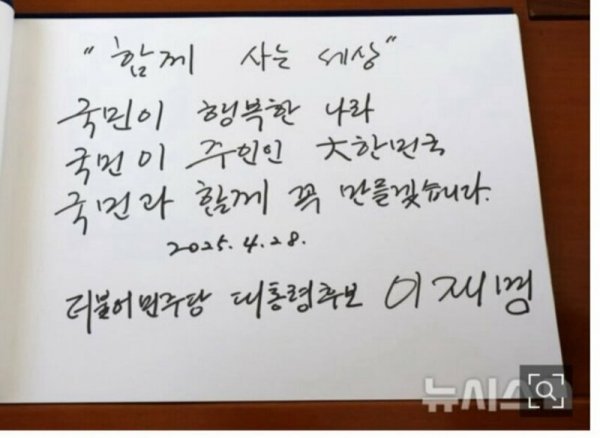 "함께 사는 세상"
국민이 행복한 나라
국민이 주인인 大한민국
국민과 함께 꼭 만들겠습니다.
2025.4.28.
더불어민주당 대통령후보 이재명
뉴시스